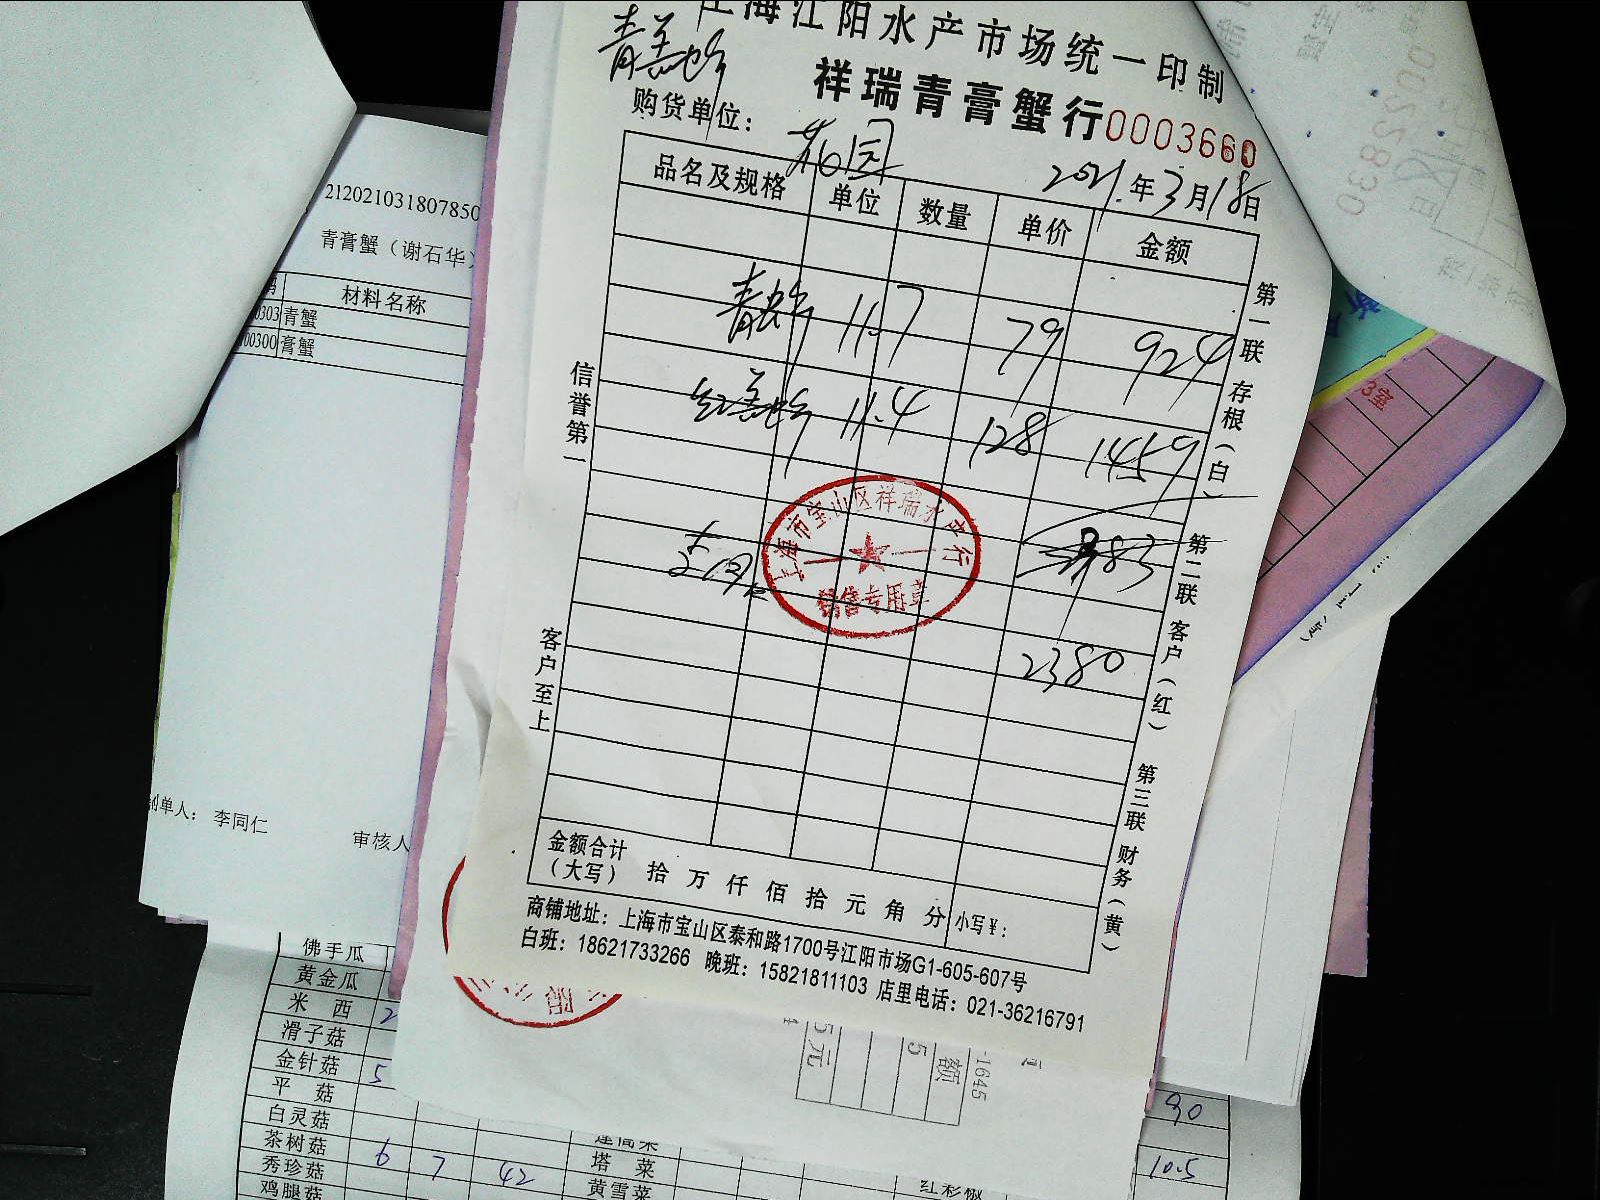 上海江阳水产市场统一印制
青羔蟹
祥瑞青膏蟹行 0003660
购货单位： 花园
2021年3月18日
品名及规格 单位 数量 单价 金额
青蟹 11.7 79 924
红羔蟹 11.4 128 1459
2383
2380
上海市宝山区祥瑞水产行
销售专用章
信誉第一
客户至上
第一联 存根（白） 第二联 客户（红） 第三联 财务（黄）
金额合计（大写） 拾 万 仟 佰 拾 元 角 分 小写¥：
商铺地址：上海市宝山区泰和路1700号江阳市场G1-605-607号
白班：18621733266 晚班：15821811103 店里电话：021-36216791
212021031807850
青膏蟹（谢石华）
材料名称
0303 青蟹
00300 膏蟹
制单人： 李同仁
审核人
佛手瓜
黄金瓜
米 西 2
滑子菇
金针菇 5
平 菇
白灵菇
茶树菇 6 7 42
秀珍菇
鸡腿菇
塔 菜
黄雪菜
红彩椒
90
10.5
3室
0022830
-1645
额
5
5元